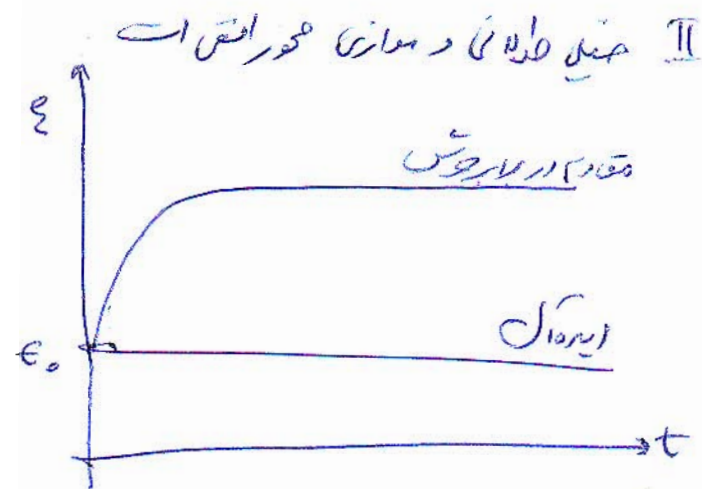 II خیلی طولانی و موازی محور افقی است
ε
مقاوم در برابر خزش
ایده‌آل
ε₀
t